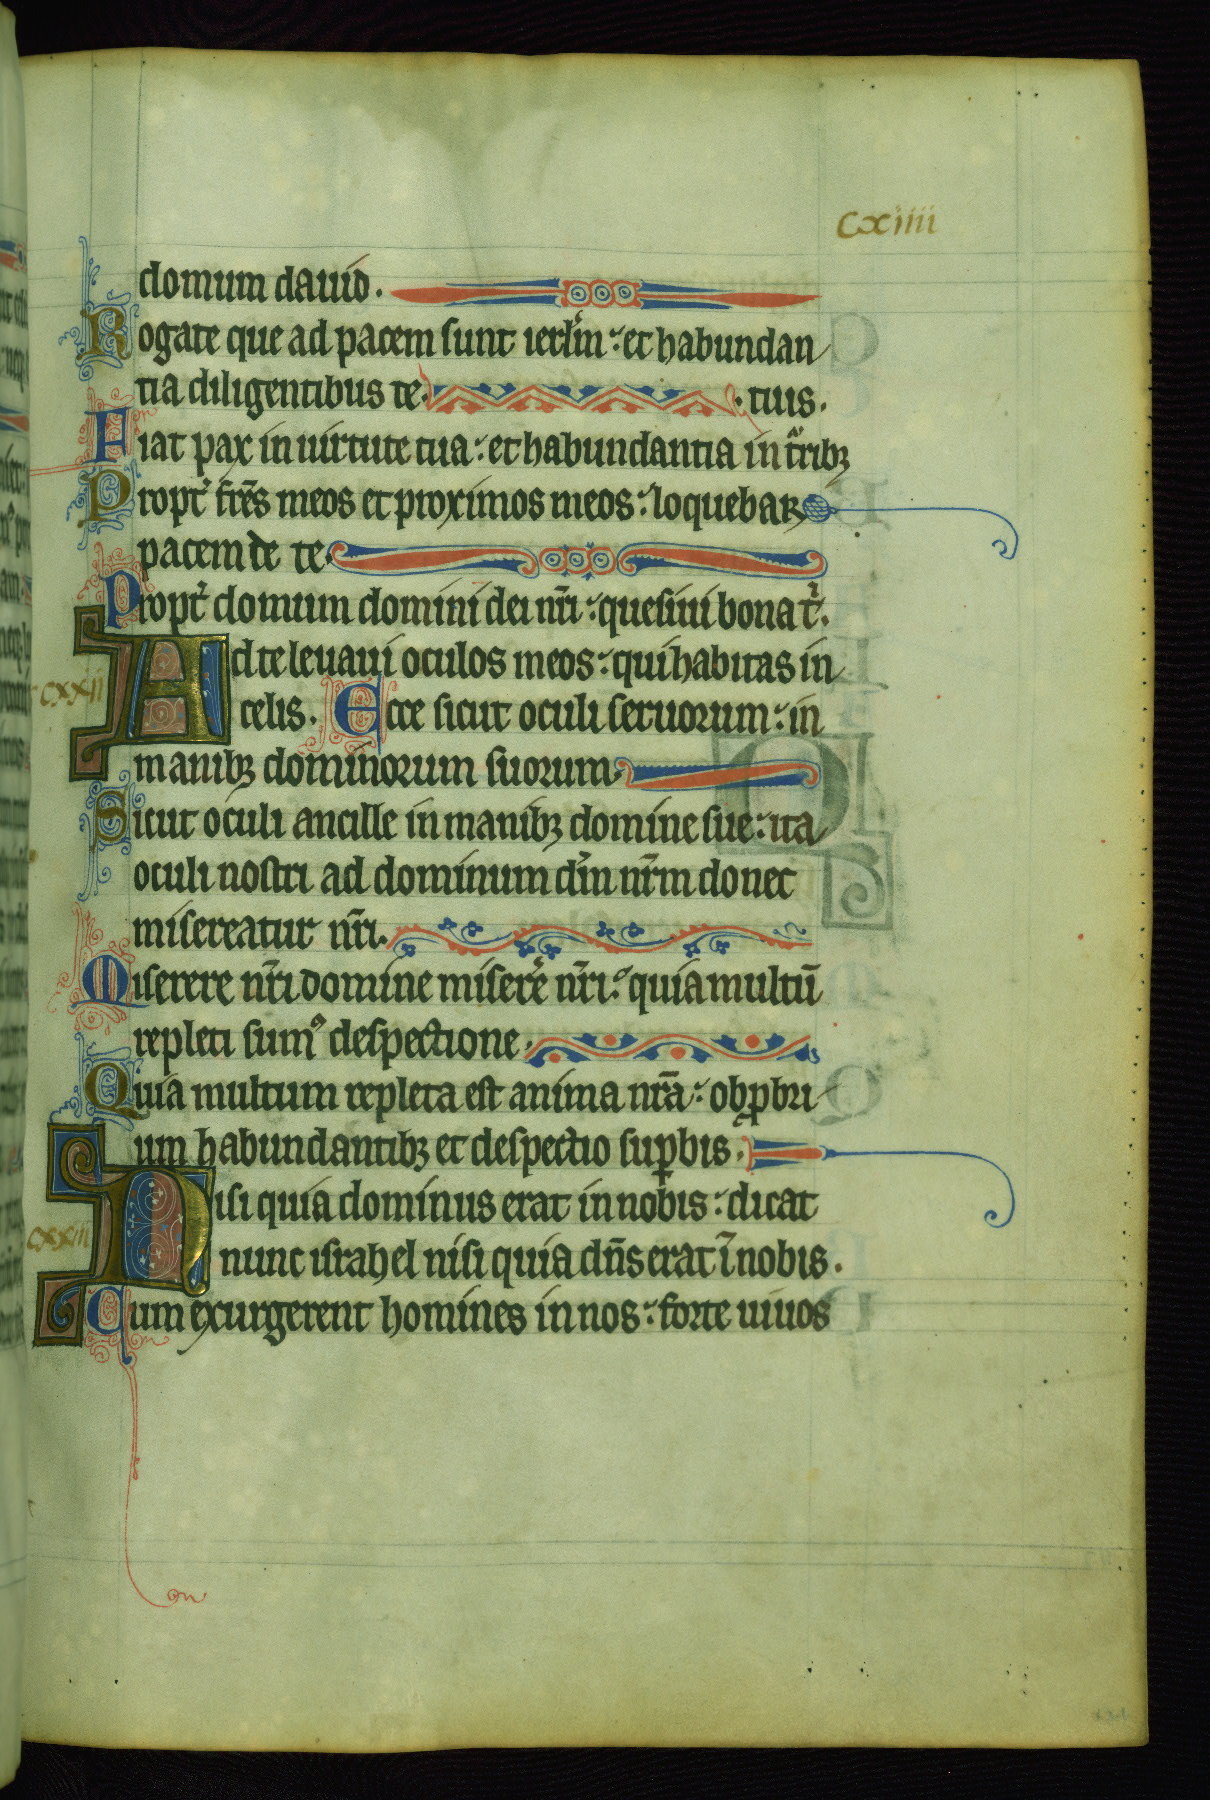 cxiiii
domum dauid.
Rogate que ad pacem sunt ierl'm : et habundan
tia diligentibus te.
tuis.
Fiat pax in uirtute tua : et habundantia in t'rib⁊
Propt' fr̄es meos et proximos meos : loquebar
pacem de te.
Propt' domum domini dei nr̄i : quesiui bona t'.
cxxii
Ad te leuaui oculos meos : qui habitas in
celis. Ecce sicut oculi seruorum : in
manib⁊ dominorum suorum.
Sicut oculi ancille in manib⁊ domine sue : ita
oculi nostri ad dominum dn̄m nr̄m donec
misereatur nr̄i.
Miserere nr̄i domine miser'e nr̄i : quia multū
repleti sumꝰ despectione.
Quia multum repleta est anima nr̄a : obꝓbri
um habundantib⁊ et despectio suꝑbis.
cxxiii
Nisi quia dominus erat in nobis : dicat
nunc israhel nisi quia dn̄s erat ī nobis.
Cum exurgerent homines in nos : forte uiuos